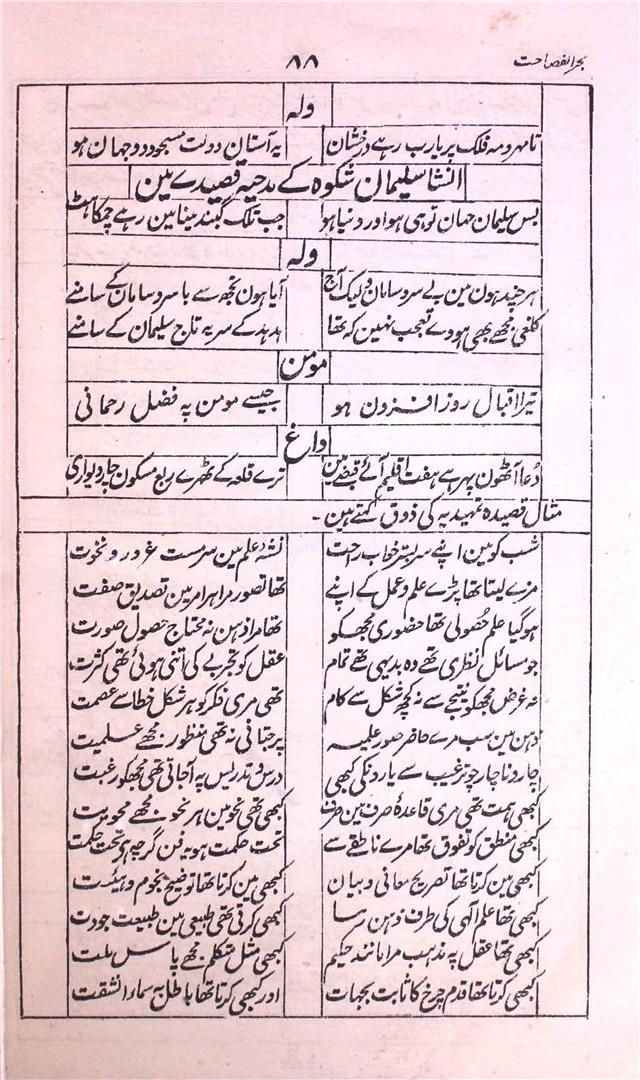 بحر الفصاحت
۸۸
ولہ
تا مہر و مہ فلک پر یارب رہے درخشان یہ آستان دولت مسجود دو جہان ہو
انشا سلیمان شکوہ کے مدحیہ قصیدے مین
بس سلیمان جہان تو ہی ہو اور دنیا ہو جب تلک گنبد مینا مین رہے چمکاہٹ
ولہ
ہر چند ہون مین بے سر و سامان و لیک آج آیا ہون تجھ سے با سر و سامان کے سامنے
کلغی مجھے بھی ہووے تعجب نہین کہ تھا ہدہد کے سر پہ تاج سلیمان کے سامنے
مومن
تیرا اقبال روز افزون ہو جیسے مومن پہ فضل رحمانی
داغ
دعا آٹھون پہر ہے ہفت اقلیم آئے قبضے مین ترے قلعہ کے ٹھہرے ربع مسکون چار دیواری
مثال قصیدہ تمہیدیہ کی ذوق کہتے ہین ۔
شب کو مین اپنے سر بستر خواب راحت نشہ علم مین سرمست غرور و نخوت
مزے لیتا تھا پڑے علم و عمل کے اپنے تھا تصور مرا ہر امر مین تصدیق صفت
ہو گیا علم حصولی تھا حضوری مجھکو تھا مرا ذہن نہ محتاج حصول صورت
جو مسائل نظری تھے وہ بدیہی تھے تمام عقل کو تجربے کی اتنی ہوئی تھی کثرت
نہ غرض مجھکو نتیجے سے نہ کچھ شکل سے کام تھی مری فکر کو ہر شکل خطا سے عصمت
ذہن مین سب مرے حاضر صور علمیہ پر جتانی نہ تھی منظور مجھے علمیت
چار و ناچار جو ترغیب سے یارونکی کبھی درس و تدریس پہ آجاتی تھی مجھکو رغبت
کبھی ہمت تھی مری قاعدہ صرف مین صرف کبھی تھی نحو مین ہر نحو مجھے محویت
کبھی منطق کو تفوق تھا مرے ناطقے سے تحت حکمت ہو یہ فن گرچہ تحت حکمت
کبھی مین کرتا تھا تصریح معانی و بیان کبھی مین کرتا تھا توضیح نجوم و ہیئت
کبھی تھا علم الٰہی کی طرف ذہن رسا کبھی کرتی تھی طبیعی مین طبیعت جودت
کبھی تھا عقل پہ مذہب مرا مانند حکیم کبھی مثل متکلم مجھے پاس ملت
کبھی کرتا تھا قدم چرخ کا ثابت بجہات اور کبھی کرتا تھا باطل بہ سما انشقت